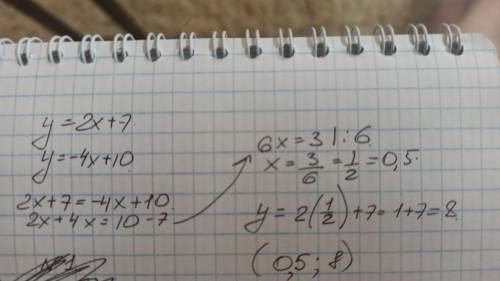 y=2x+7
y=-4x+10
2x+7=-4x+10
2x+4x=10-7
6x=3 |:6
x=3/6=1/2=0,5
y=2(1/2)+7=1+7=8
(0,5;8)